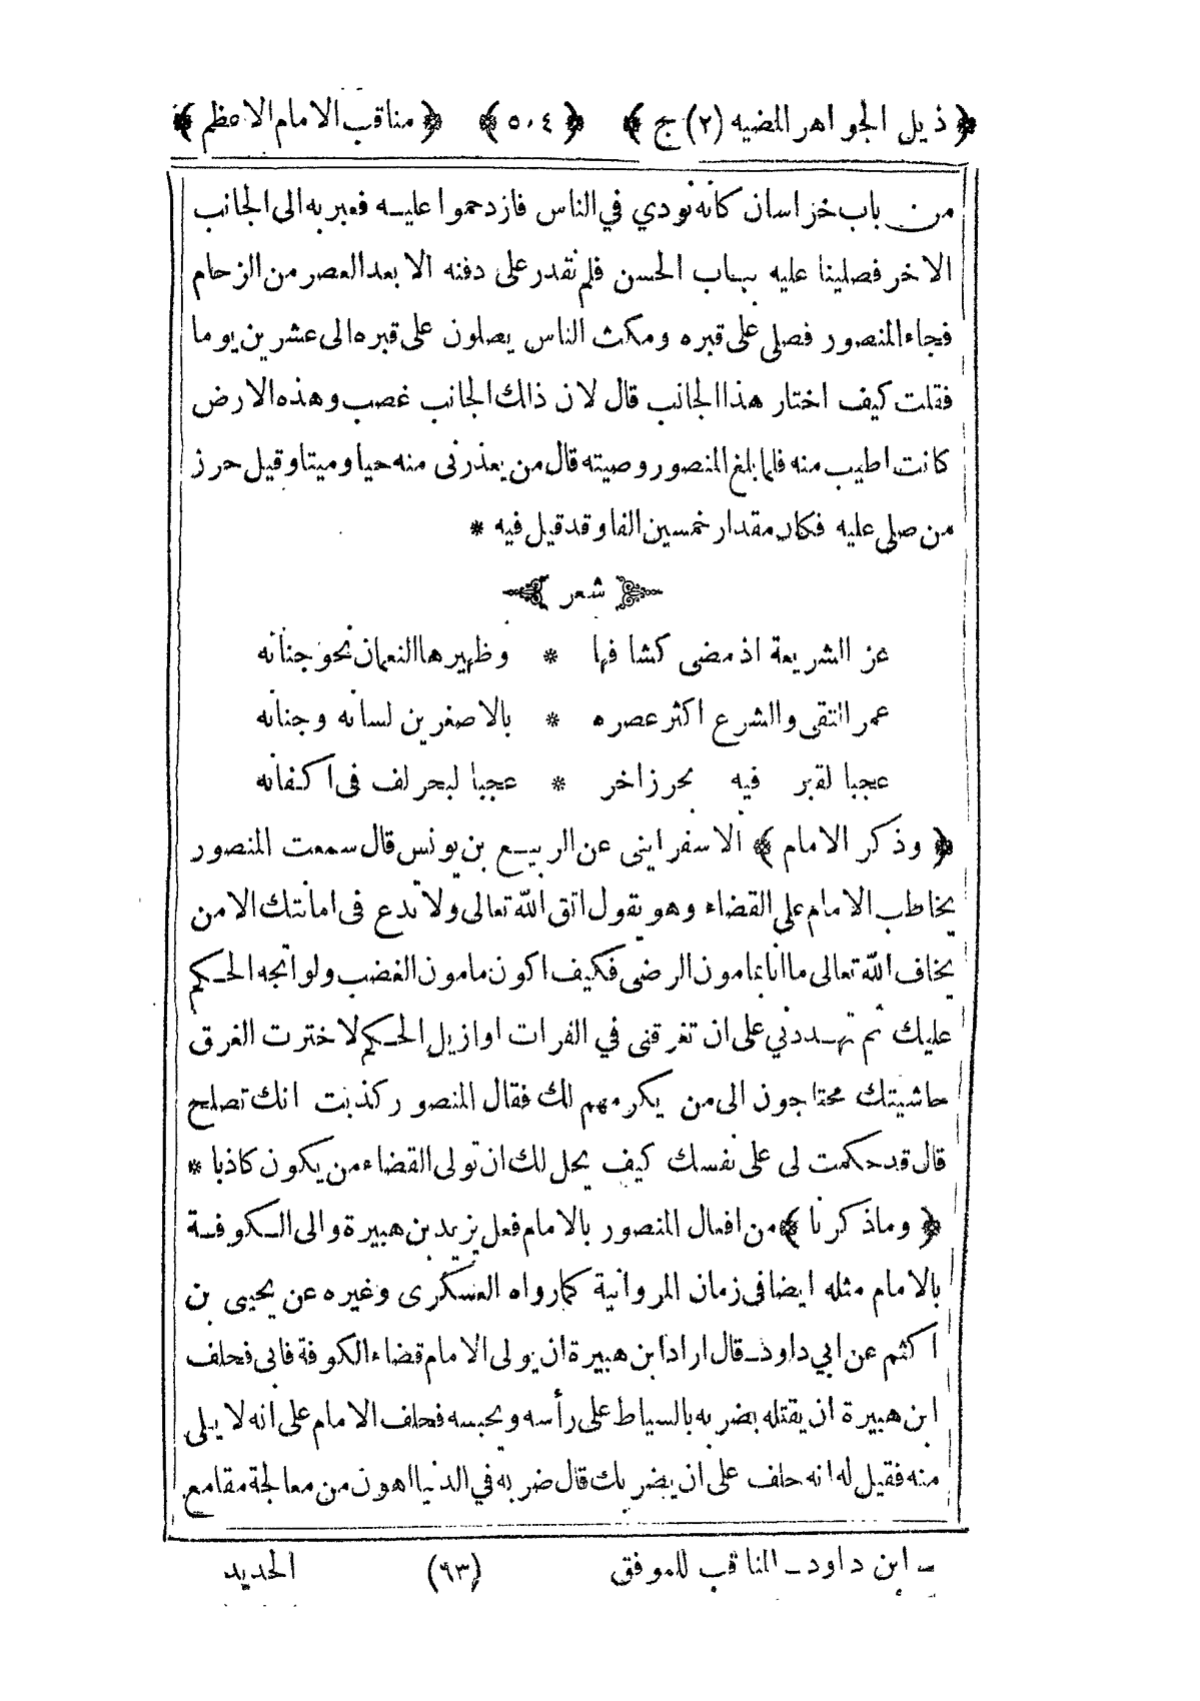 ﴿ ذيل الجواهر المضيه (٢) ج ﴾ ﴿ ٥٠٤ ﴾ ﴿ مناقب الامام الاعظم ﴾
من باب خراسان كأنه نودي في الناس فازدحموا عليه فعبر به الى الجانب
الاخر فصلينا عليه بباب الحسن فلم نقدر على دفنه الا بعد العصر من الزحام
فجاء المنصور فصلى على قبره ومكث الناس يصلون على قبره الى عشرين يوما
فقلت كيف اختار هذا الجانب قال لان ذلك الجانب غصب وهذه الارض
كانت اطيب منه فلما بلغ المنصور وصيته قال من يعذرنى منه حيا وميتا وقيل حرز
من صلى عليه فكان مقدار خمسين الفا وقد قيل فيه *
﴿ شعر ﴾
عز الشريعة اذ مضى كشافها * وظهيرها النعمان نحو جنانه
عمر التقى والشرع اكثر عصره * بالاصغرين لسانه وجنانه
عجبا لقبر فيه بحر زاخر * عجبا لبحر لف فى اكفانه
﴿ وذكر الامام ﴾ الاسفراينى عن الربيع بن يونس قال سمعت المنصور
يخاطب الامام على القضاء وهو يقول اتق الله تعالى ولا تدع فى امانتك الا من
يخاف الله تعالى ما انا بمامون الرضى فكيف اكون مامون الغضب ولو اتجه الحكم
عليك ثم تهددني على ان تغرقنى في الفرات او ازيل الحكم لاخترت الغرق
حاشيتك محتاجون الى من يكرمهم لك فقال المنصور كذبت انك تصلح
قال قد حكمت لى على نفسك كيف يحل لك ان تولى القضاء من يكون كاذبا *
﴿ وما ذكرنا ﴾ من افعال المنصور بالامام فعل يزيد بن هبيرة والى الكوفة
بالامام مثله ايضا فى زمان المروانية كما رواه العسكرى وغيره عن يحيى بن
اكثم عن ابي داود ـ قال اراد ابن هبيرة ان يولى الامام قضاء الكوفة فابى فحلف
ابن هبيرة ان يقتله بضربه بالسياط على رأسه ويحبسه فحلف الامام على انه لا يلى
منه فقيل له انه حلف على ان يضربك قال ضربه في الدنيا اهون من معالجة مقامع
ـ ابن داود ـ المناقب للموفق (٩٣) الحديد